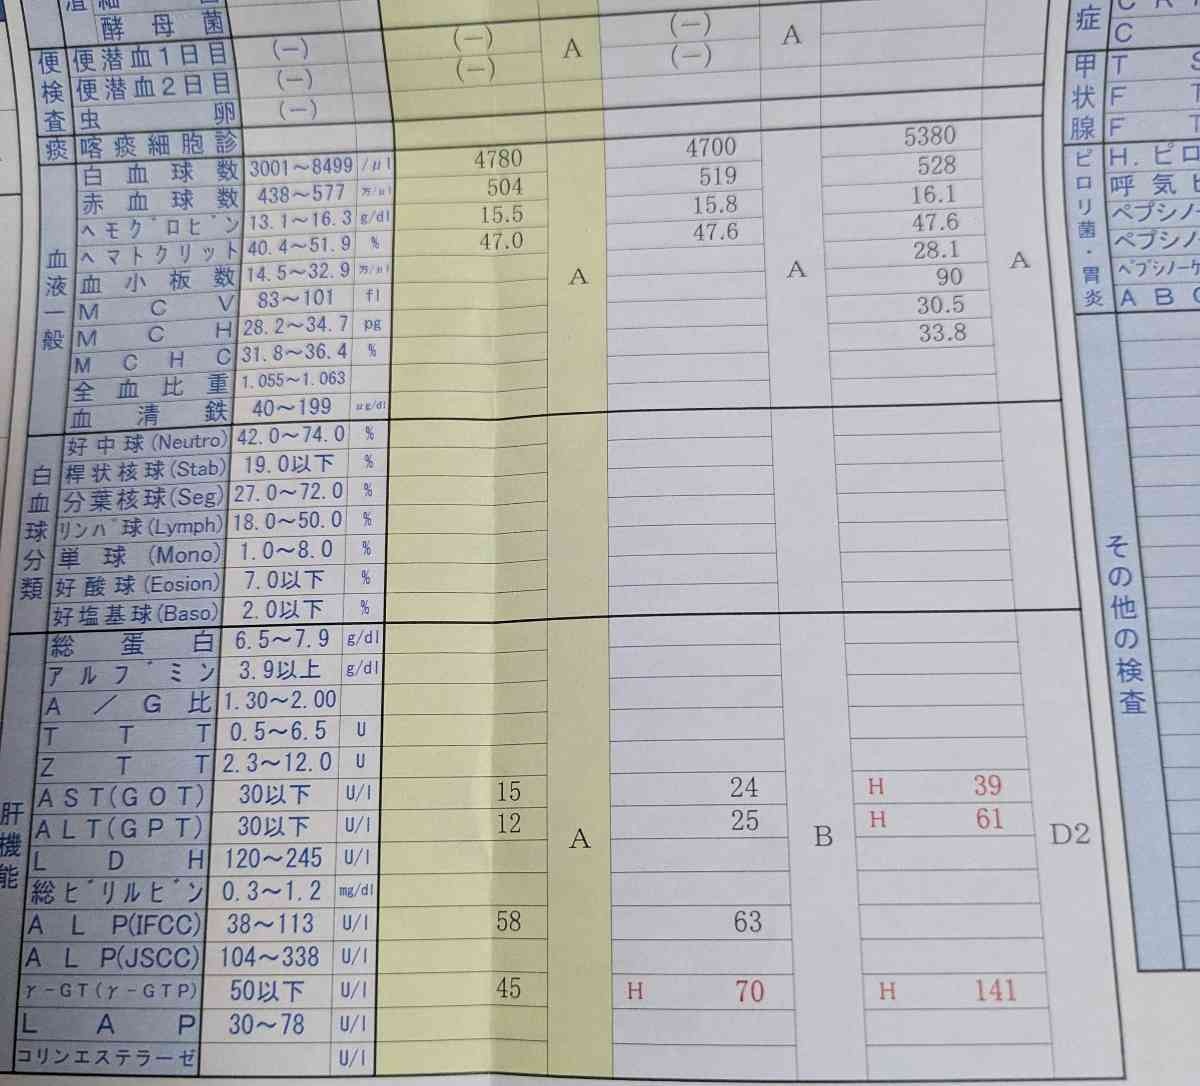 酵母菌
便検査
便潜血1日目 (−) (−) A (−) A
便潜血2日目 (−) (−) (−)
虫卵 (−)
痰 喀痰細胞診
血液一般
白血球数 3001〜8499 /μl 4780 4700 5380
赤血球数 438〜577 万/μl 504 519 528
ヘモグロビン 13.1〜16.3 g/dl 15.5 15.8 16.1
ヘマトクリット 40.4〜51.9 % 47.0 47.6 47.6
血小板数 14.5〜32.9 万/μl A A 28.1 A
MCV 83〜101 fl 90
MCH 28.2〜34.7 pg 30.5
MCHC 31.8〜36.4 % 33.8
全血比重 1.055〜1.063
血清鉄 40〜199 μg/dl
白血球分類
好中球(Neutro) 42.0〜74.0 %
桿状核球(Stab) 19.0以下 %
分葉核球(Seg) 27.0〜72.0 %
リンパ球(Lymph) 18.0〜50.0 %
単球(Mono) 1.0〜8.0 %
好酸球(Eosion) 7.0以下 %
好塩基球(Baso) 2.0以下 %
肝機能
総蛋白 6.5〜7.9 g/dl
アルブミン 3.9以上 g/dl
A/G比 1.30〜2.00
TTT 0.5〜6.5 U
ZTT 2.3〜12.0 U
AST(GOT) 30以下 U/l 15 24 H 39
ALT(GPT) 30以下 U/l 12 A 25 B H 61 D2
LDH 120〜245 U/l
総ビリルビン 0.3〜1.2 mg/dl
ALP(IFCC) 38〜113 U/l 58 63
ALP(JSCC) 104〜338 U/l
γ-GT(γ-GTP) 50以下 U/l 45 H 70 H 141
LAP 30〜78 U/l
コリンエステラーゼ U/l
症
C
甲状腺
T S
F T
F T
ピロリ菌・胃炎
H.ピロ
呼気
ペプシノ
ペプシノ
ペプシノーゲ
ABC
その他の検査